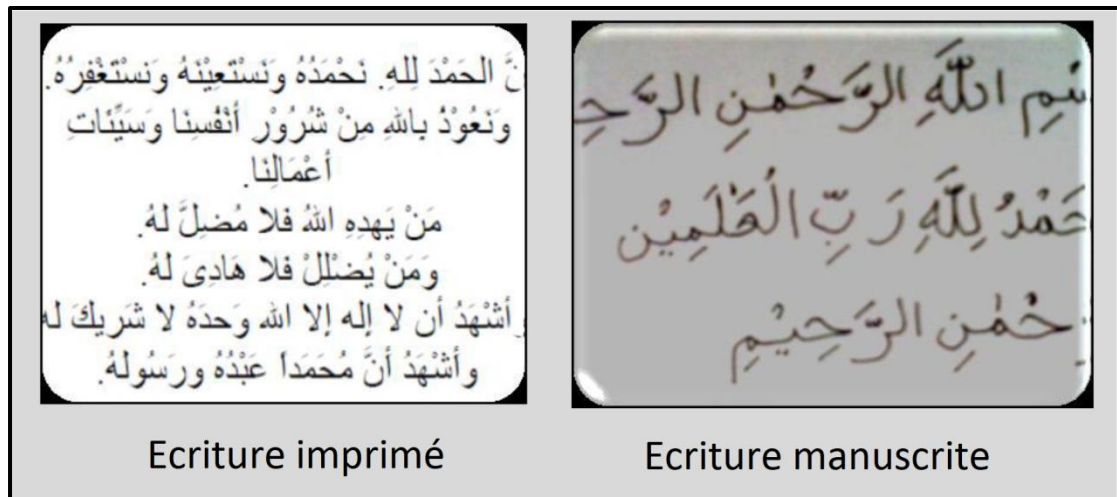 نَّ الحَمْدَ لِلهِ. نَحْمَدُهُ وَنَسْتَعِيْنَهُ وَنسْتَغْفِرُهُ.
وَنَعُوْذُ باللهِ مِنْ شُرُوْرِ أنْفُسِنَا وَسَيِّئَاتِ
أعْمَالِنَا.
مَنْ يَهدِهِ اللهُ فَلا مُضِلَّ لهُ.
وَمَنْ يُضْلِلْ فَلا هَادِىَ لهُ.
وأشْهَدُ أن لا إله إلا الله وَحدَهُ لا شَريكَ له
وأشْهَدُ أنَّ مُحَمَداً عَبْدُهُ ورَسُولهُ.
Ecriture imprimé
سْمِ اللَّهِ الرَّحْمٰنِ الرَّحِ
حَمْدُ لِلَّهِ رَبِّ الْعٰلَمِيْن
حْمٰنِ الرَّحِيْمِ
Ecriture manuscrite